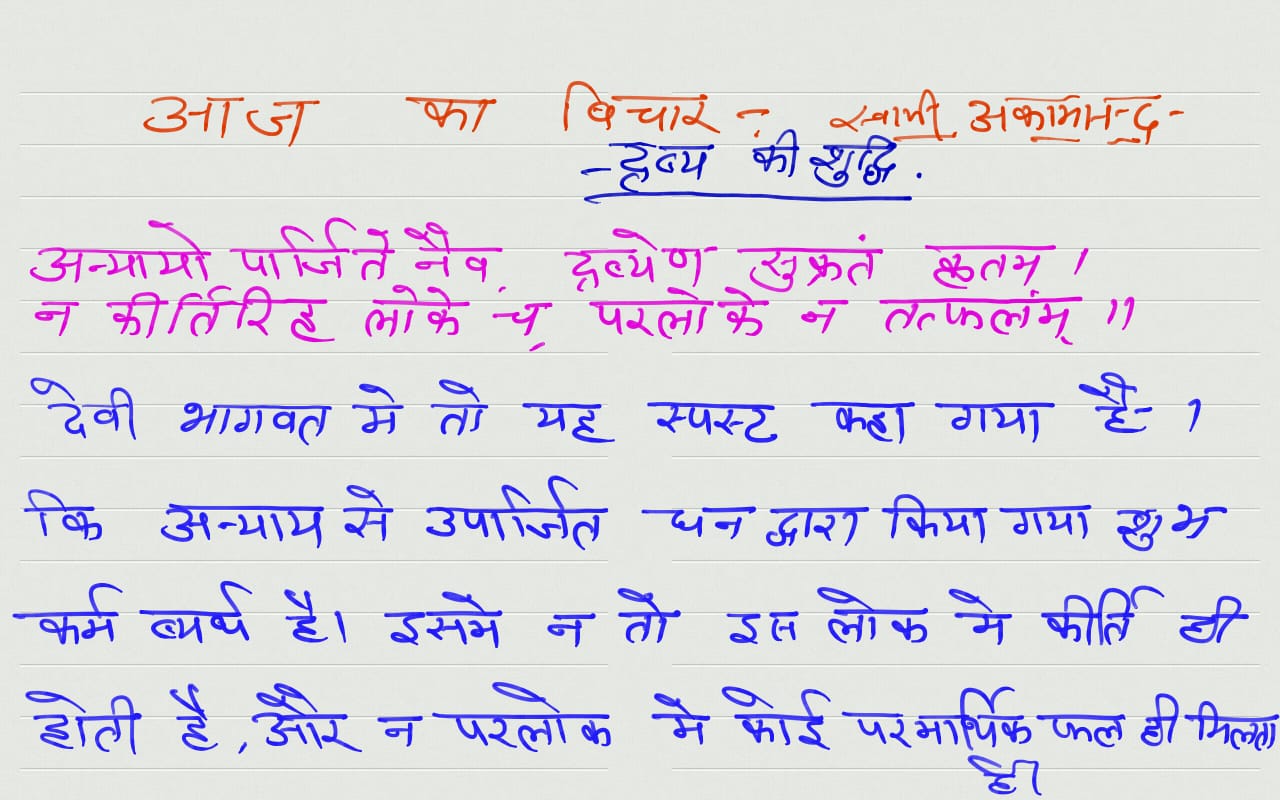 आज का बिचार - स्वामी अकामानन्द -
- द्रब्य की शुद्धि .
अन्यायो पार्जिते नैव द्रव्येण सुक्रतं क्रतम् ।
न कीर्तिरिह लोके च परलोके न तत्फलंम् ॥
देवी भागवत मे तो यह स्पस्ट कहा गया है- ।
कि अन्याय से उपार्जित धन द्वारा किया गया शुभ
कर्म ब्यर्थ है। इसमे न तो इस लोक मे कीर्ति ही
होती है, और न परलोक मे कोई परमार्थिक फल ही मिलता
है।